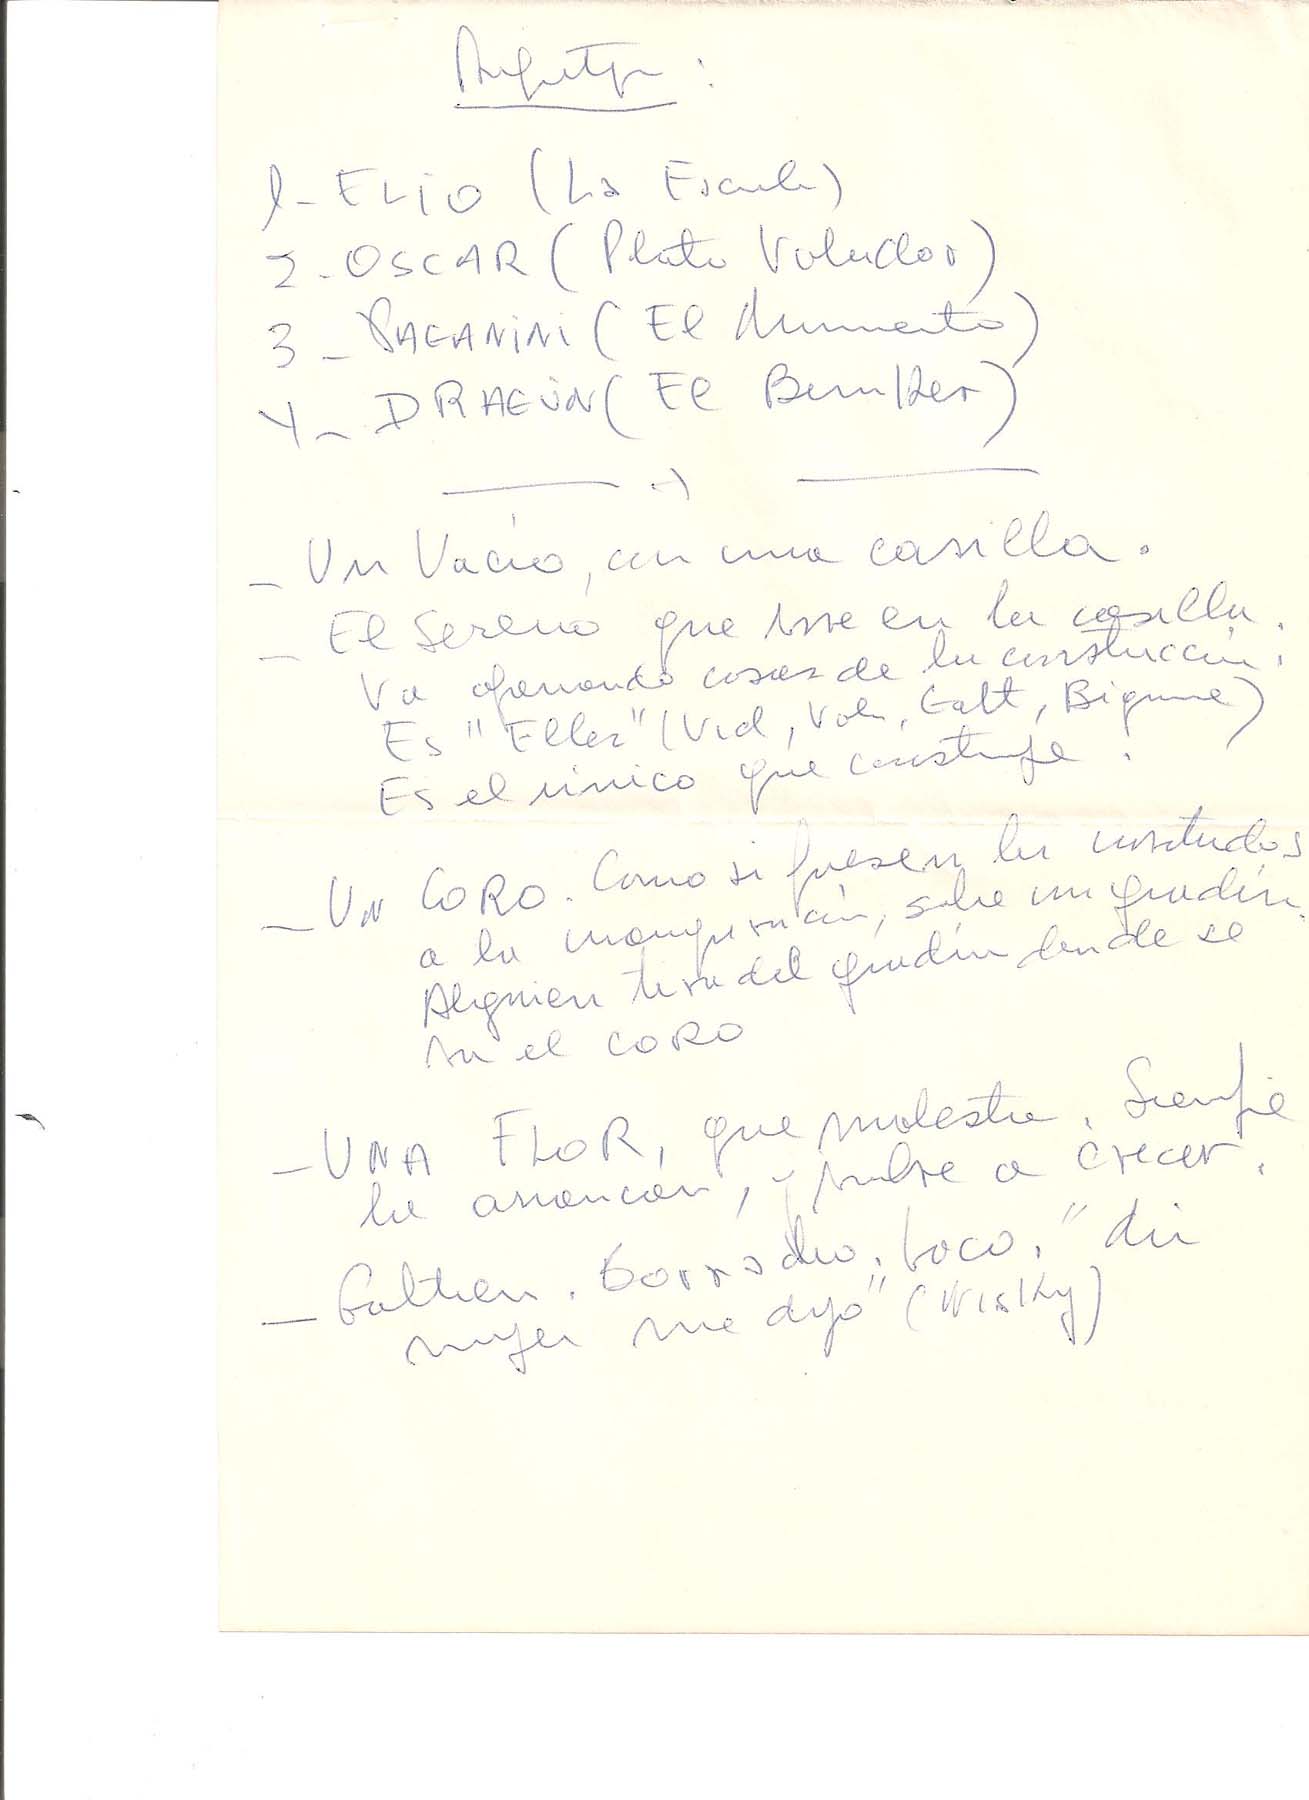 1- ELIO (La Escuela)
2- OSCAR (Plato Volador)
3- PAGANINI (El Monumento)
4- DRAGÚN (El Bunker)
- Un Vacío, con una casilla.
- El Sereno que vive en la casilla.
Va afanando cosas de la construcción.
Es "Ellos" (Vid, Viola, Galt, Bignone)
Es el único que construye.
- Un CORO. Como si fuesen los invitados
a la inauguración, sobre un gradín.
Alguien tira del gradín donde se
el CORO
- UNA FLOR, que molesta. Siempre
la arrancan, y vuelve a crecer.
- Galtieri. Borracho. Loco. "
mujer me dijo" (Wisky)